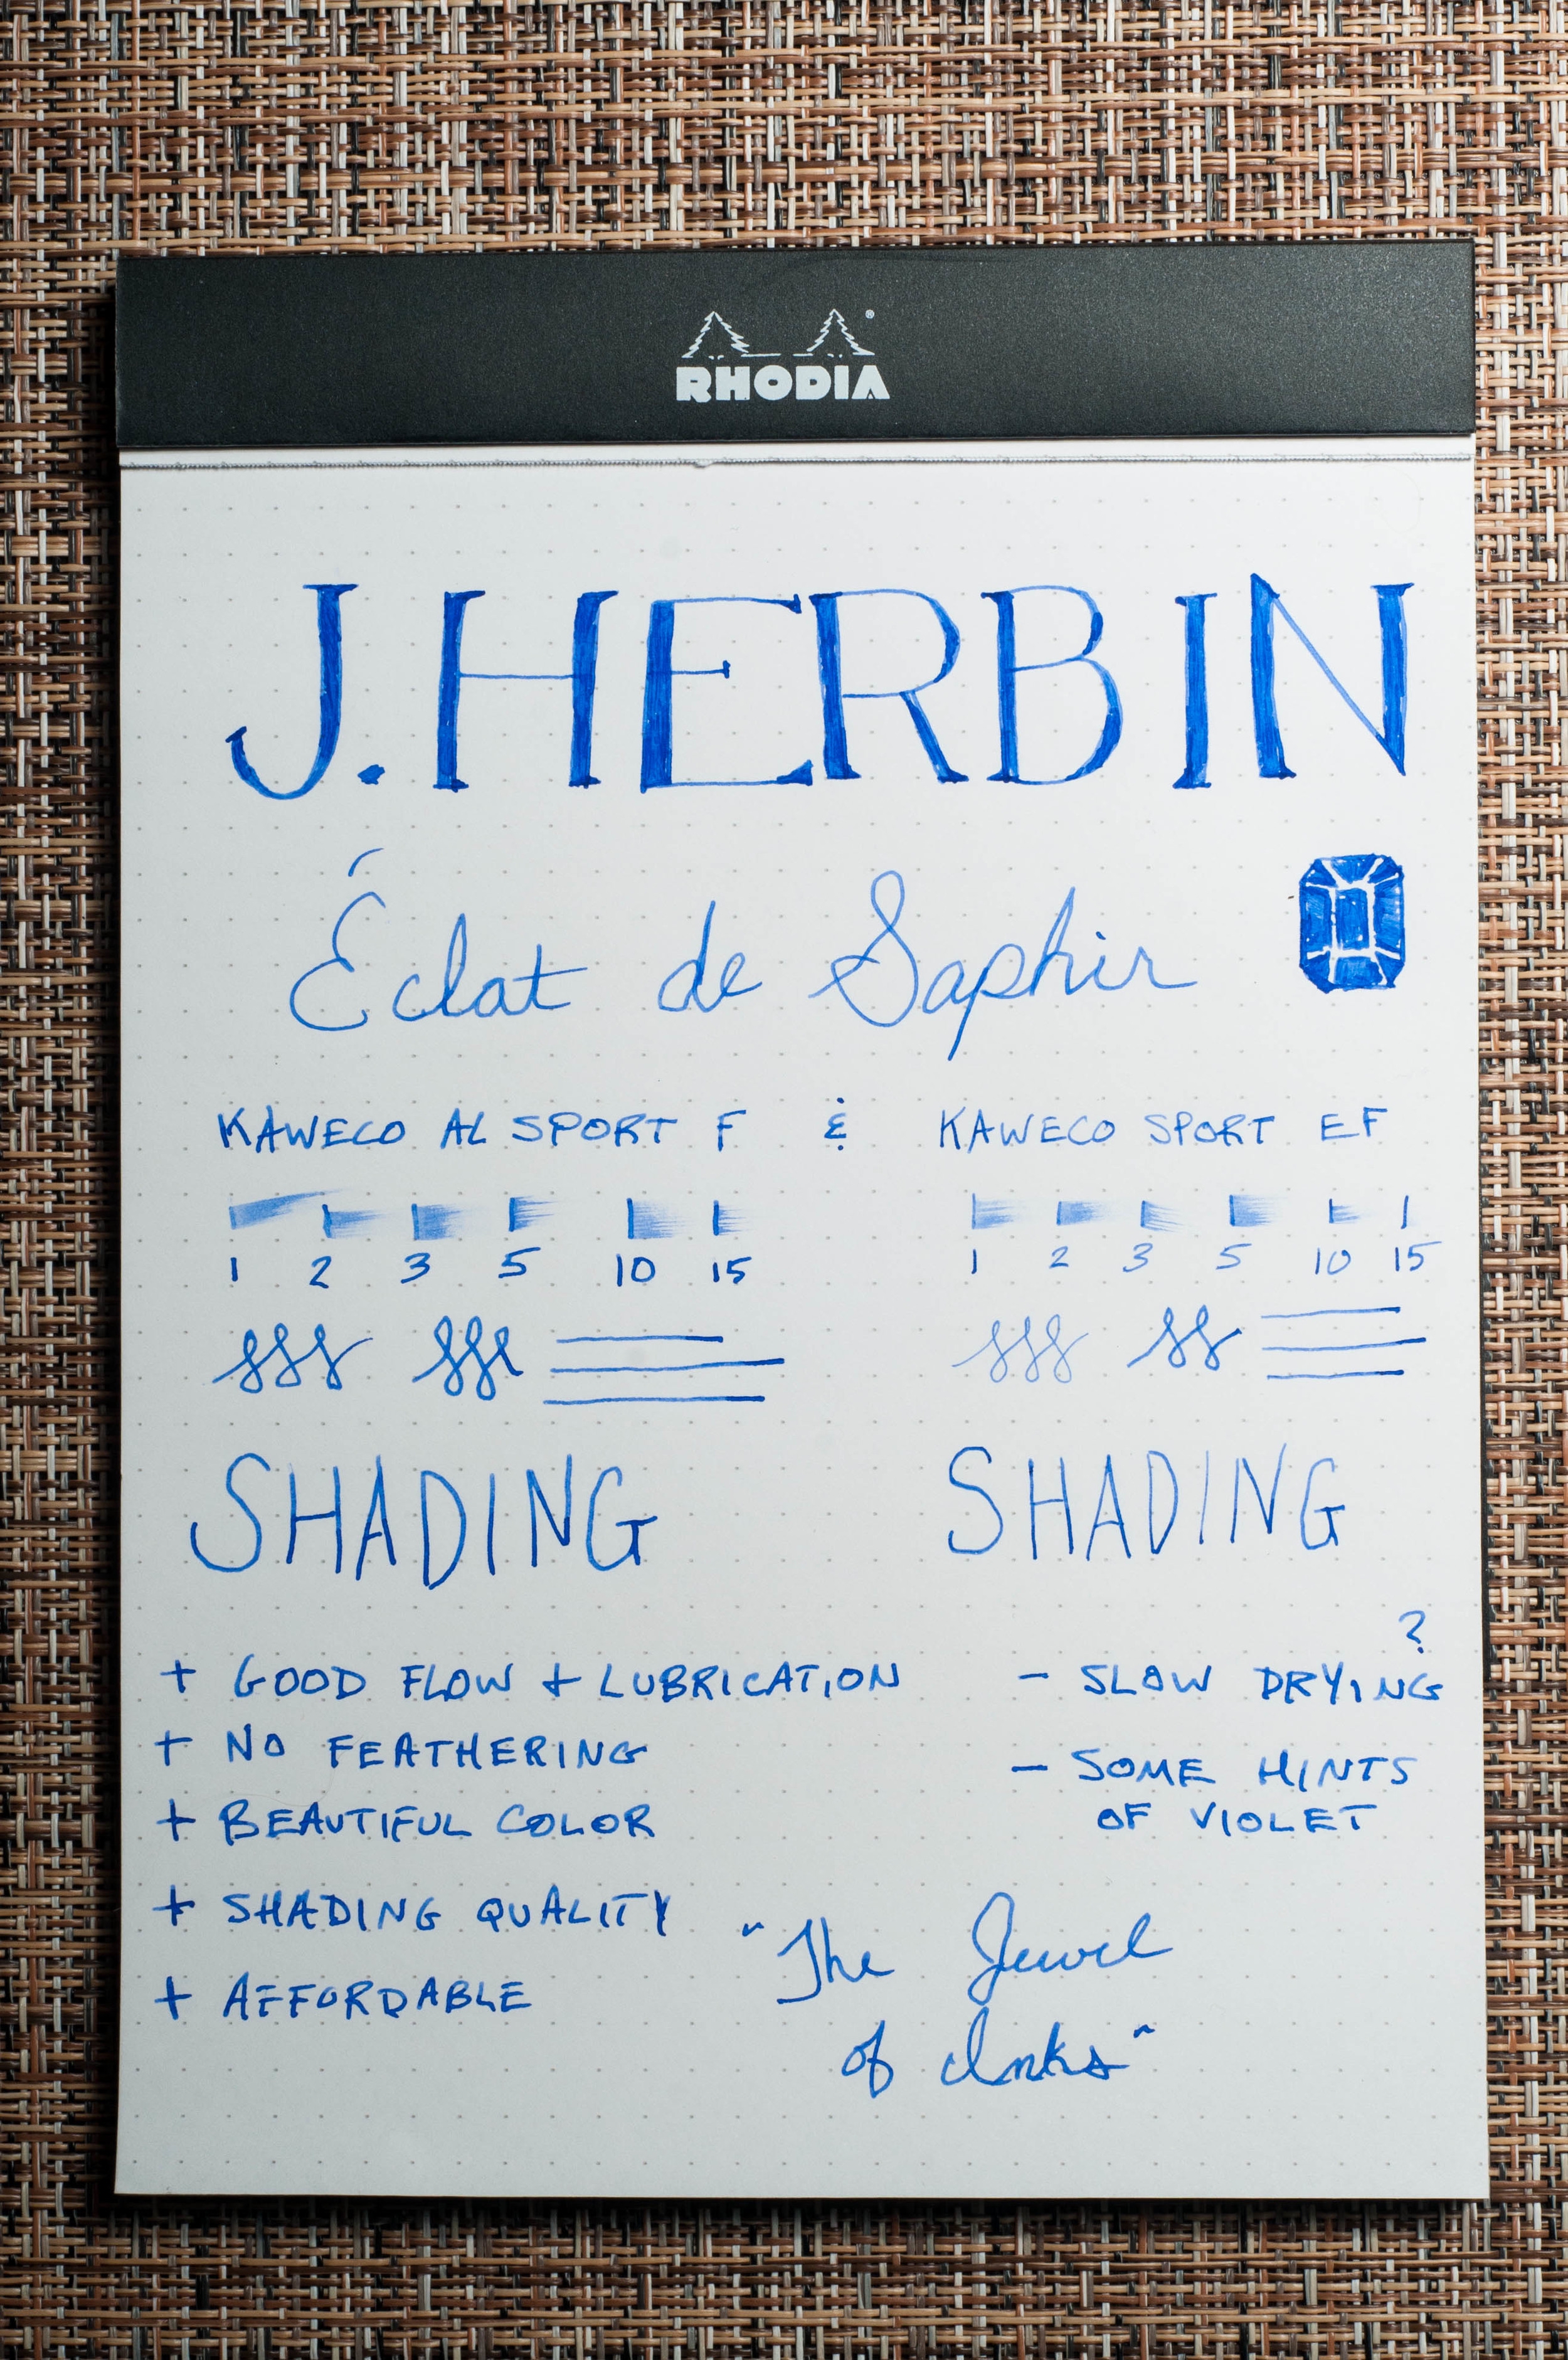 RHODIA
J. HERBIN
Éclat de Saphir
KAWECO AL SPORT F & KAWECO SPORT EF
1 2 3 5 10 15 1 2 3 5 10 15
SHADING SHADING
?
+ GOOD FLOW + LUBRICATION - SLOW DRYING
+ NO FEATHERING
- SOME HINTS
+ BEAUTIFUL COLOR
OF VIOLET
+ SHADING QUALITY
"The Jewel
+ AFFORDABLE
of Inks"